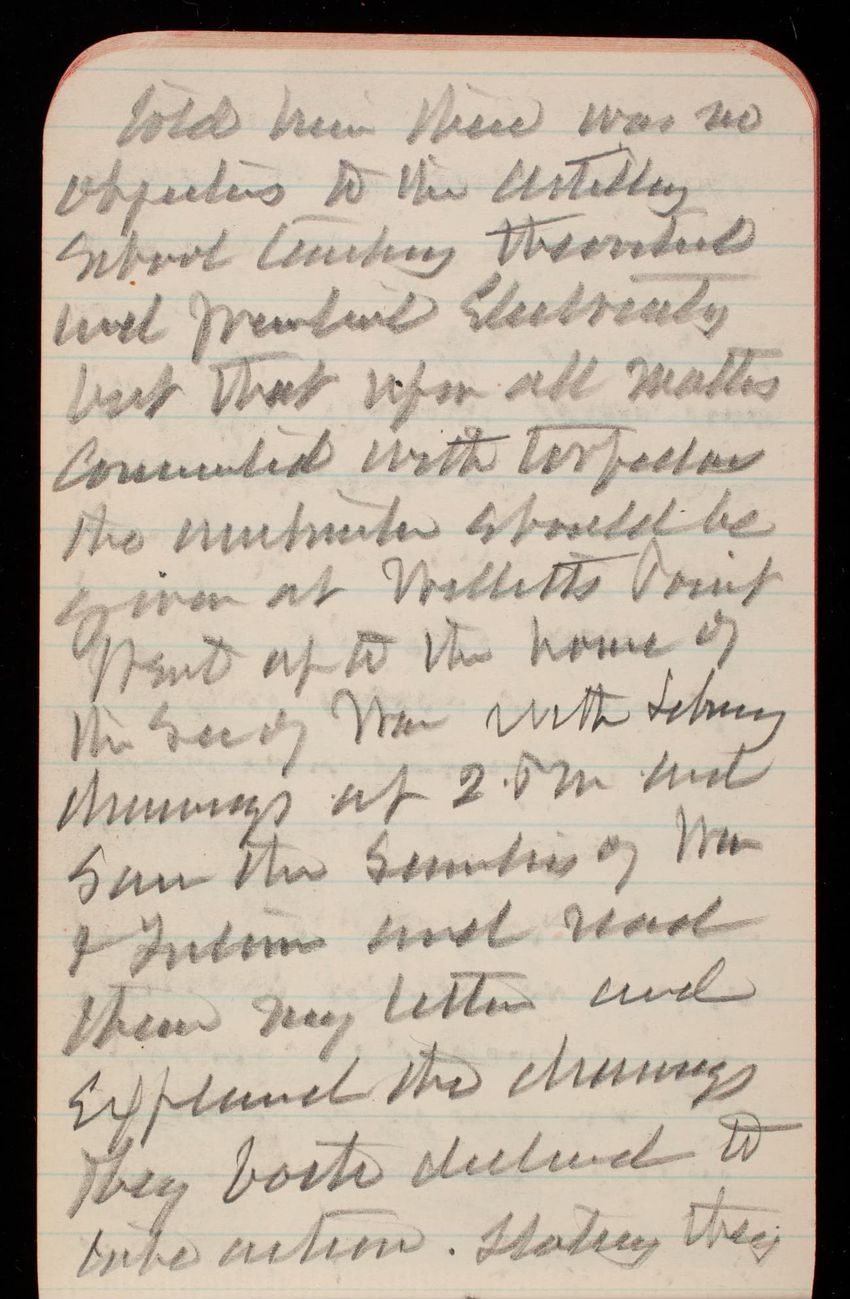 told him there was no
objection to the Artillery
School teaching theoretical
and practical Electricity
but that upon all matters
connected with torpedoes
the instruction should be
given at Willetts Point
Went up to the house of
the Sec of War with
drawings at 2 P M and
Saw the Secretaries of War
& Interior and read
them my letter and
Explained the drawings
they both declined to
take action. Stating they